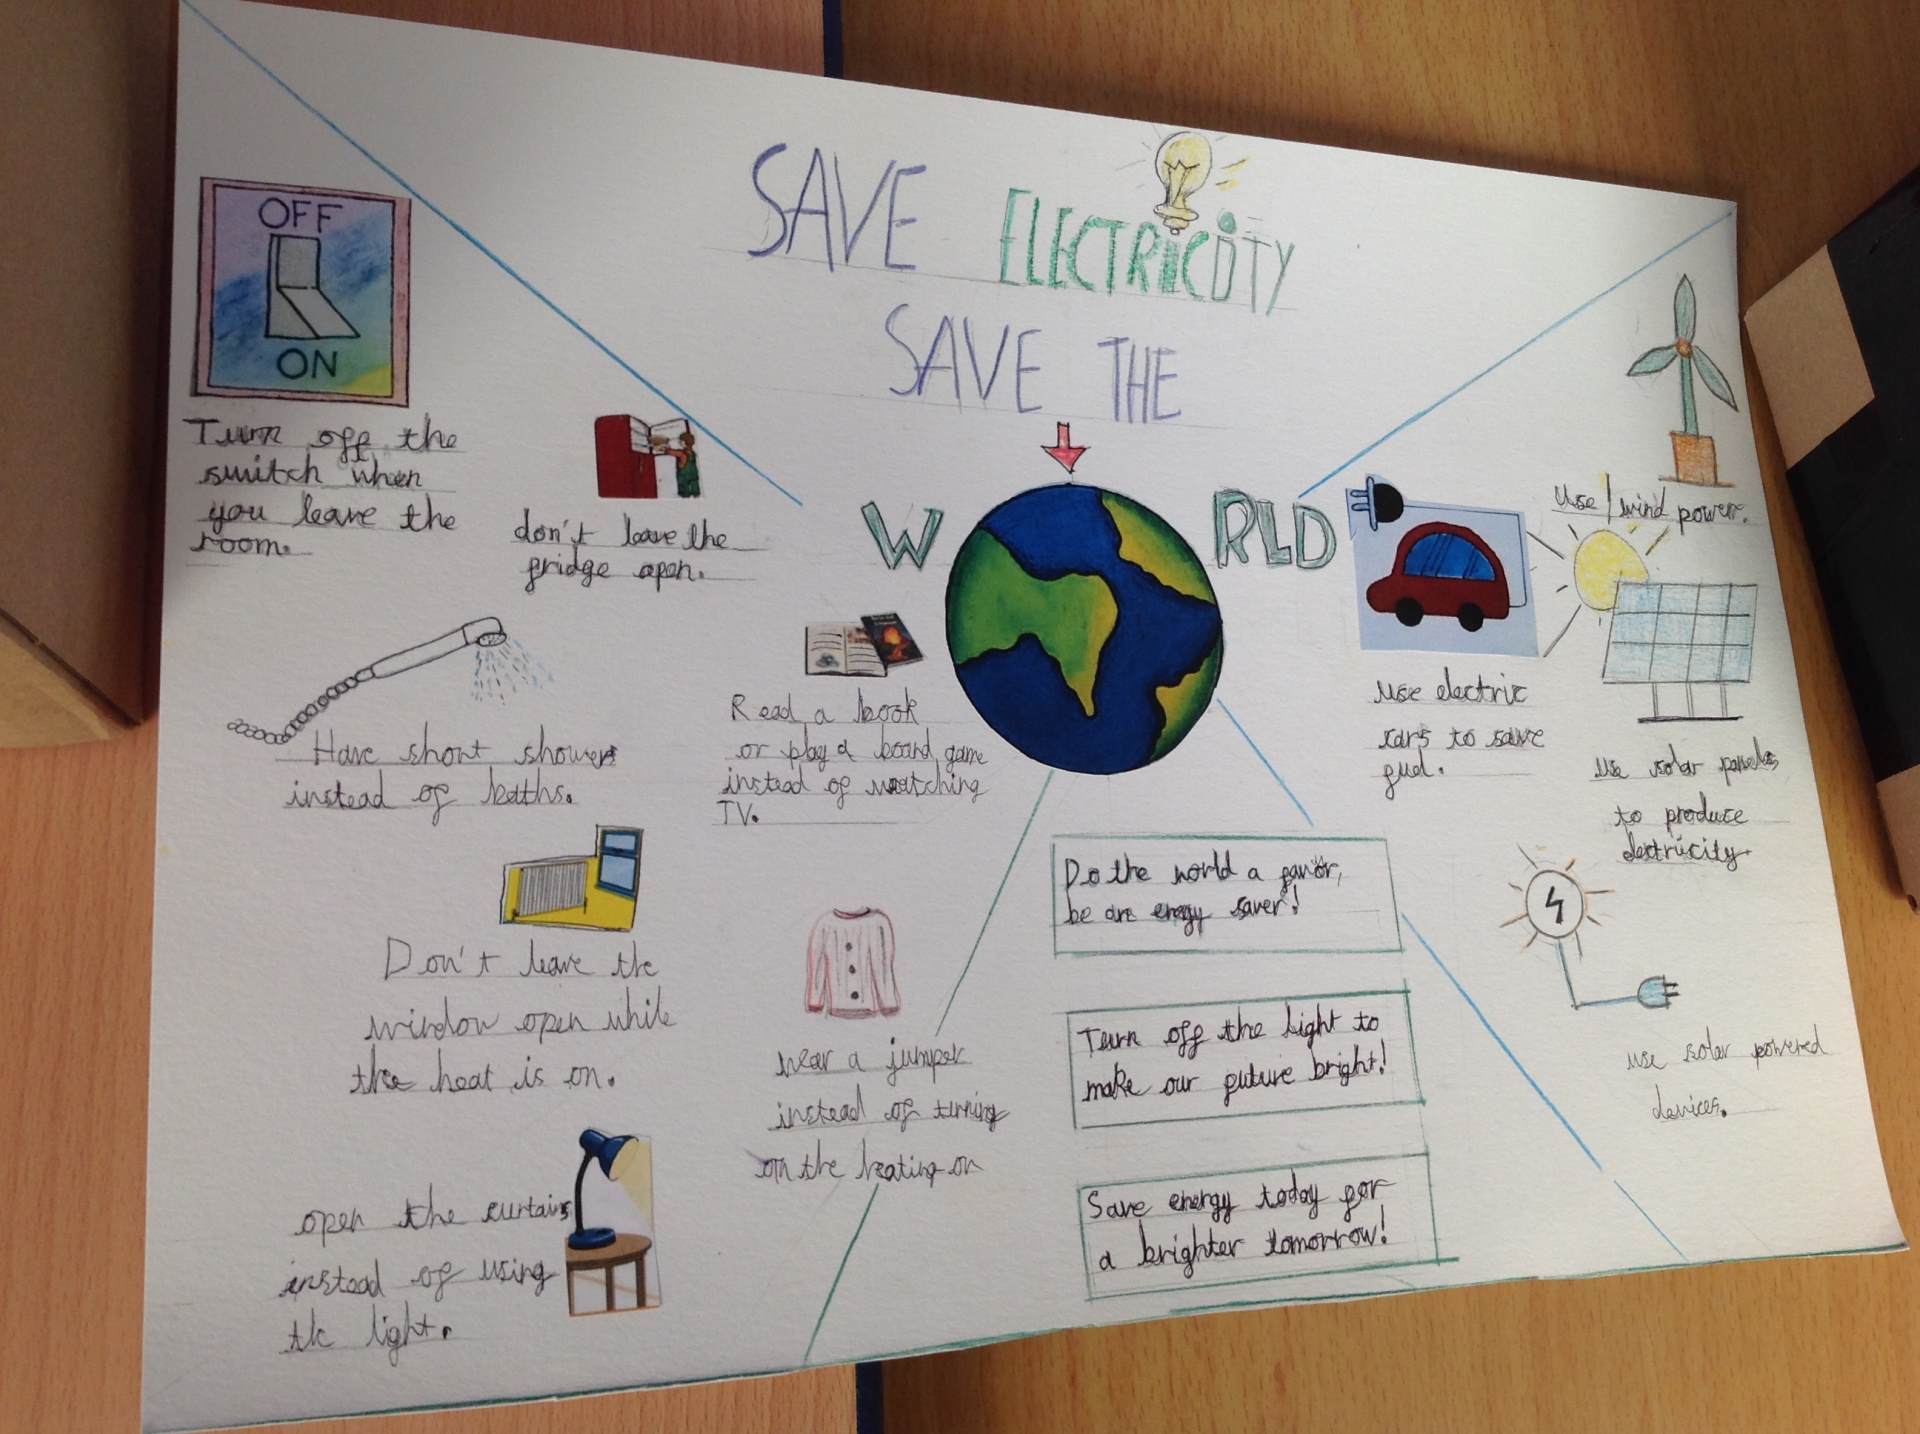 SAVE ELECTRICITY
SAVE THE
W RLD
OFF
ON
Turn off the
switch when
you leave the
room.
don't leave the
fridge open.
Have short showers
instead of baths.
Read a book
or play a board game
instead of watching
TV.
Don't leave the
window open while
the heat is on.
wear a jumper
instead of turning
on the heating on
open the curtains
instead of using
the light.
Do the world a favor,
be an energy saver!
Turn off the light to
make our future bright!
Save energy today for
a brighter tomorrow!
use wind power.
use electric
cars to save
fuel.
use solar panels
to produce
electricity.
use solar powered
devices.